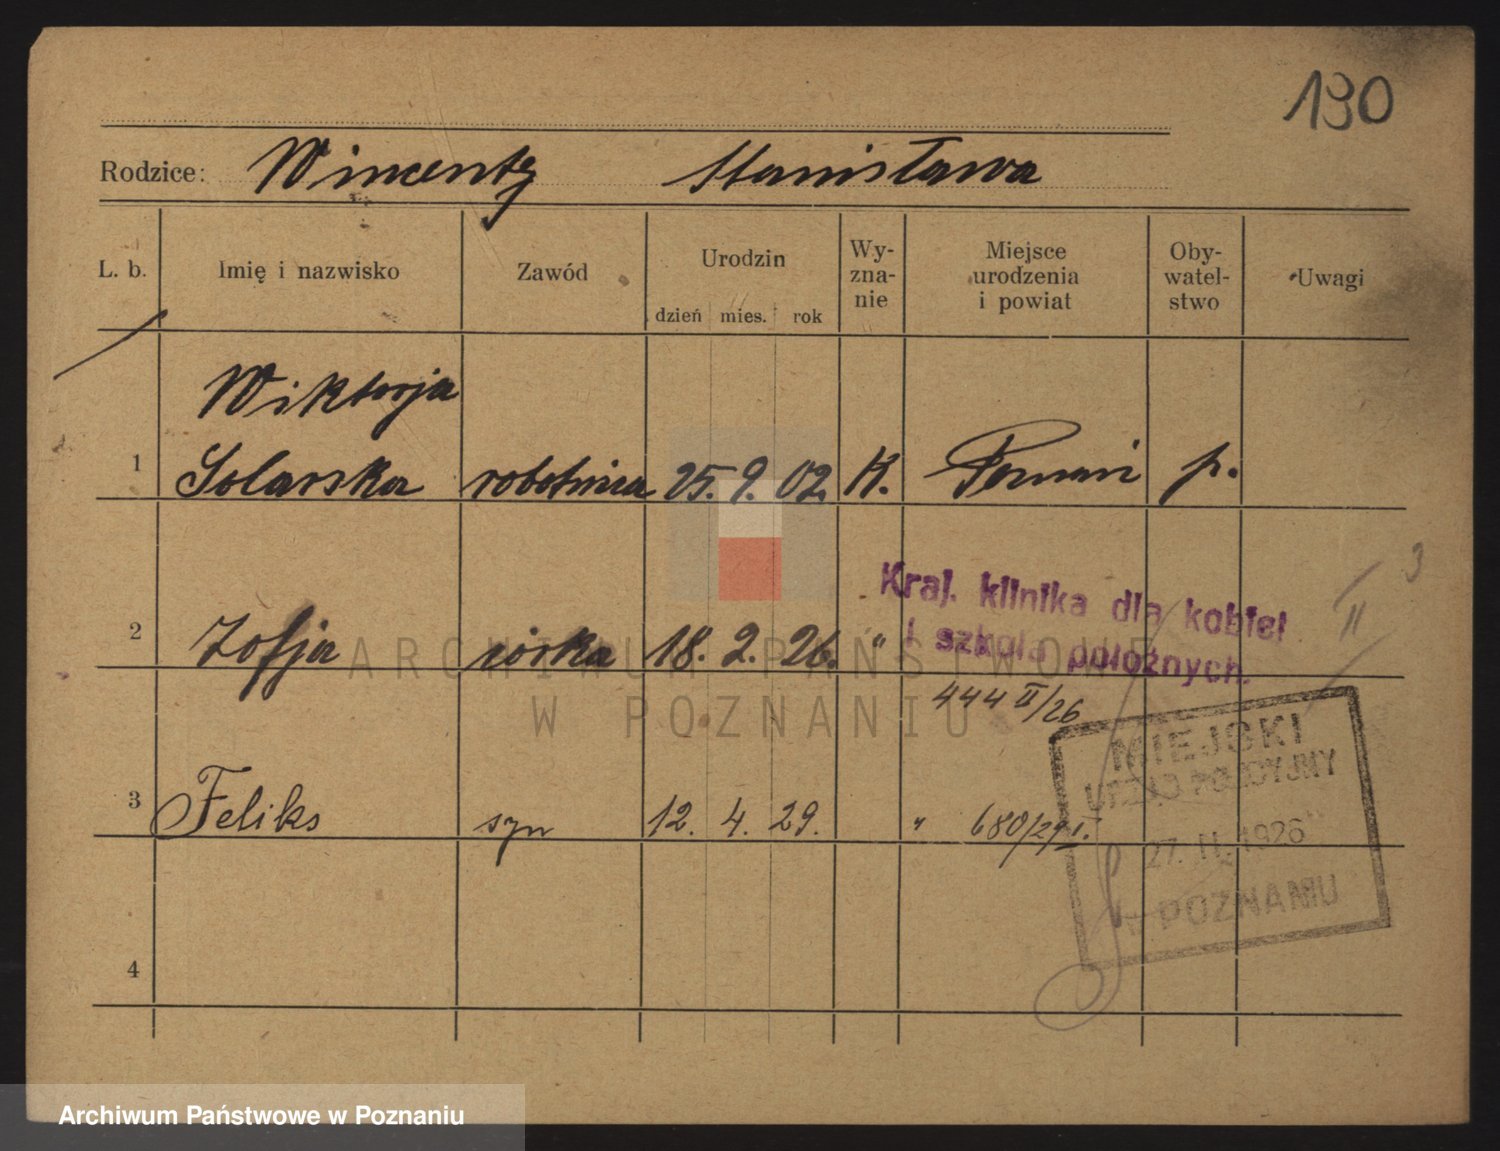 130
Rodzice: Wincenty Stanisława
L. b. Imię i nazwisko Zawód Urodzin dzień mies. rok Wy-zna-nie Miejsce urodzenia i powiat Oby-watel-stwo Uwagi
Wiktorja
1 Solarska robotnica 25. 9. 02. K. Poznań p.
Kraj. klinika dla kobiet
i szkoła położnych.
II 3
2 Zofja córka 18. 2. 26. "
444 II/26
MIEJSKI
URZĄD POLICYJNY
27. II. 1926
w POZNANIU
3 Feliks syn 12. 4. 29. " 680/29 I.
4
ARCHIWUM PAŃSTWOWE
W POZNANIU
Archiwum Państwowe w Poznaniu